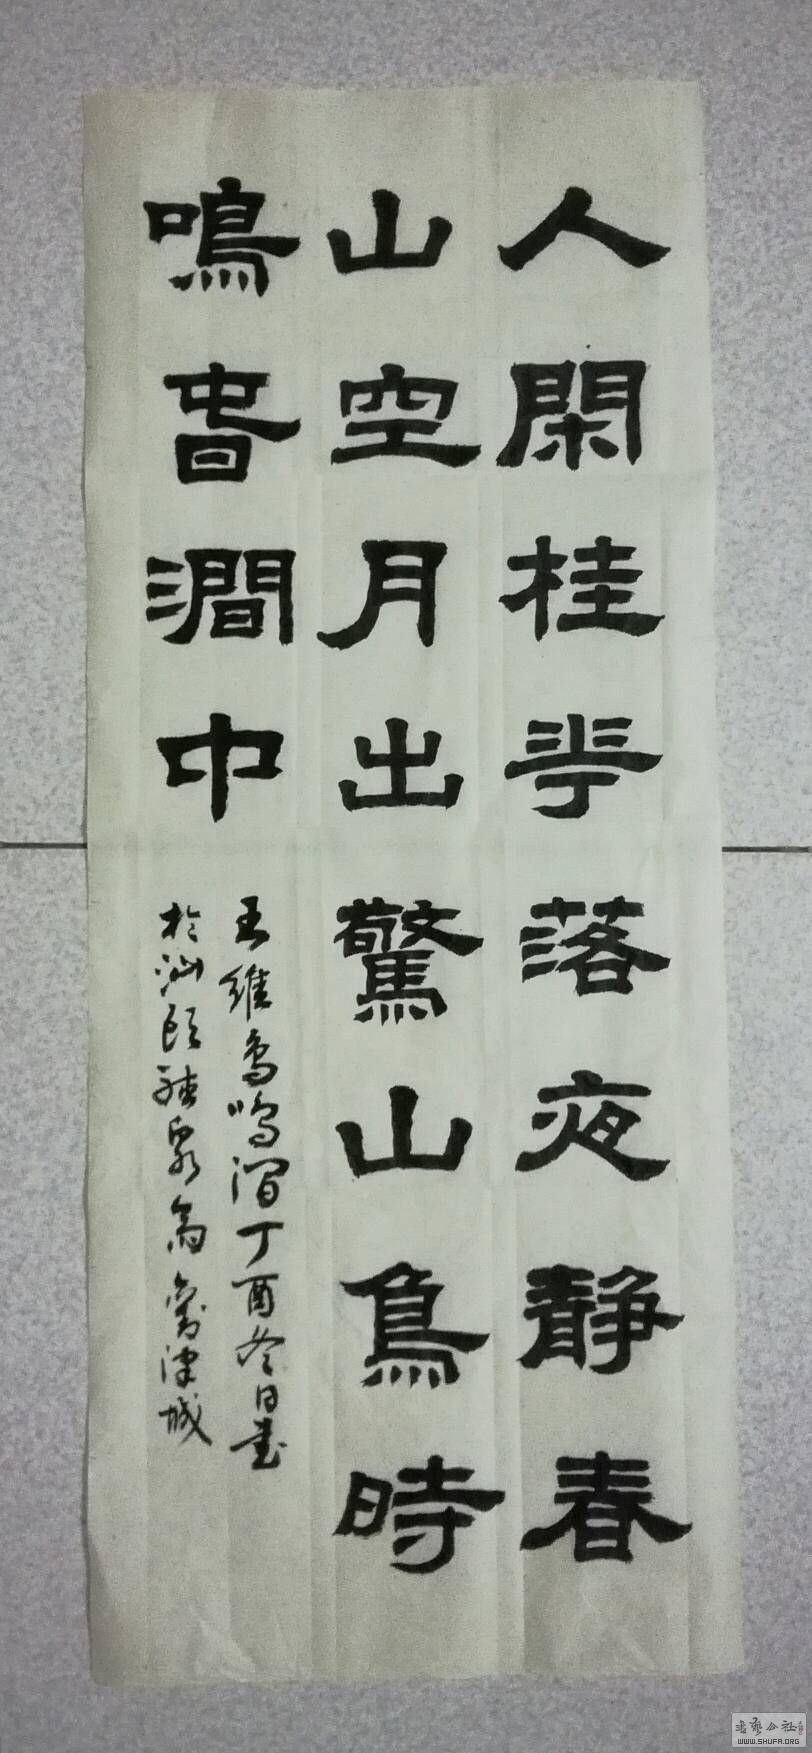 人閑桂花落夜静春
山空月出驚山鳥時
鳴旾澗中
王維鳥鳴澗丁酉冬日書
於汕頭 泉 津城
書藝公社
WWW.SHUFA.ORG